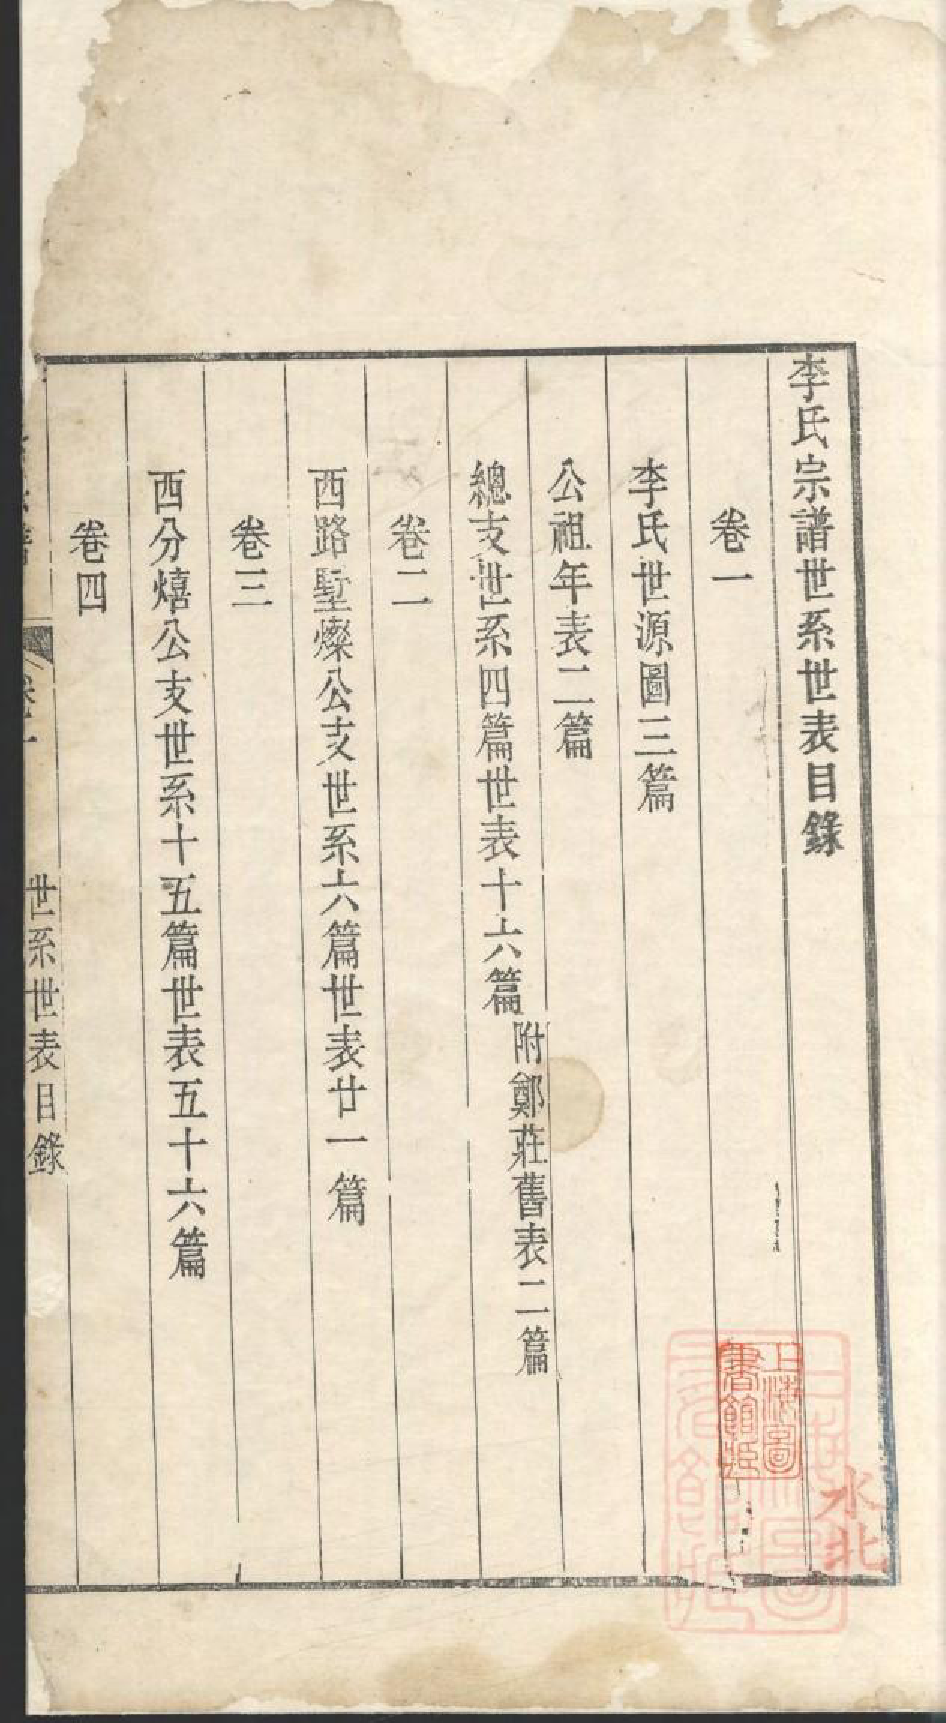 李氏宗譜世系世表目錄
卷一
李氏世源圖三篇
公祖年表二篇
總支世系四篇世表十六篇附鄭莊舊表二篇
卷二
西路墅燦公支世系六篇世表廿一篇
卷三
西分熺公支世系十五篇世表五十六篇
卷四
世系世表目錄
上海圖書館藏
水北